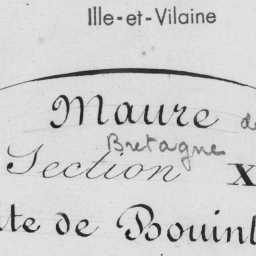 Ille-et-Vilaine
Maure de
Bretagne
Section X
te de Bouin